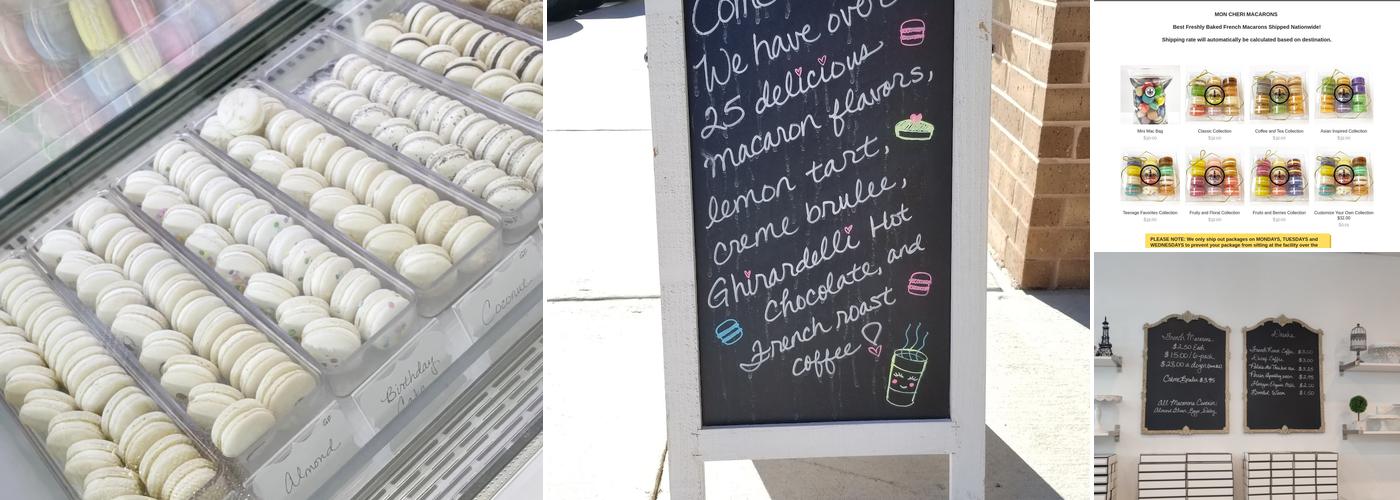 Almond
GF
Birthday
Cake
GF
Coconut
GF
Come
We have over
25 delicious
macaron flavors,
lemon tart,
creme brulee,
Ghirardelli Hot
Chocolate, and
French roast
coffee!
MON CHERI MACARONS
Best Freshly Baked French Macarons Shipped Nationwide!
Shipping rate will automatically be calculated based on destination.
Mini Mac Bag
Classic Collection
Coffee and Tea Collection
Asian Inspired Collection
Teenage Favorites Collection
Fruity and Floral Collection
Fruits and Berries Collection
Customize Your Own Collection
$32.00
PLEASE NOTE: We only ship out packages on MONDAYS, TUESDAYS and
WEDNESDAYS to prevent your package from sitting at the facility over the
French Macarons
$2.50 Each
$15.00/6-pack
$28.00 a dozen
Crème Brulée $3.95
All Macarons Contain:
Almond Flour, Eggs, Dairy
Drinks
French Roast Coffee $3.00
$3.00
$3.25
$2.95
$2.00
$1.50